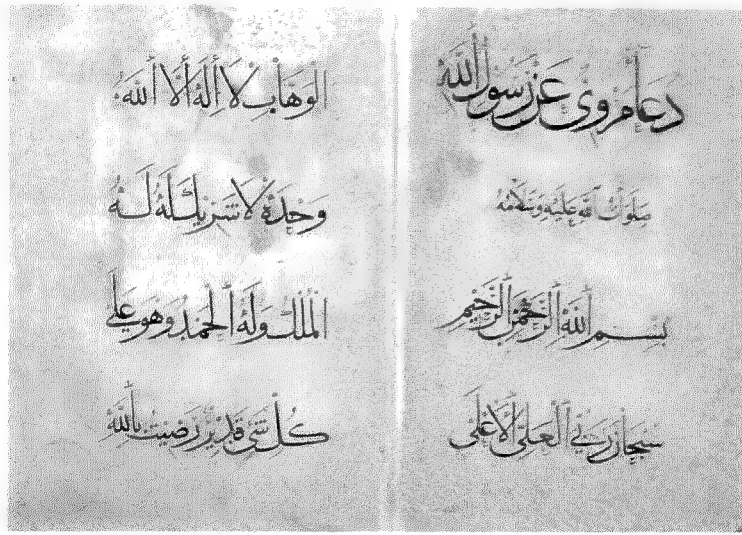 دعا مروی عن رسول الله
صلوات الله عليه وسلامه
بسم الله الرحمن الرحيم
سبحان ربي العلي الاعلى
الوهاب لا اله الا الله
وحده لا شريك له له
الملك وله الحمد وهو على
كل شئ قدير رضيت بالله